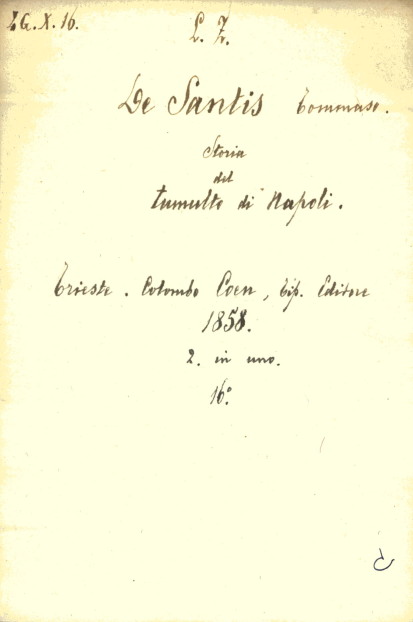 IG. X. 16.
L. Z.
De Santis Tommaso.
Storia
del
tumulto di Napoli.
Trieste. Colombo Coen, Tip. Editore
1858.
2. in uno.
16°